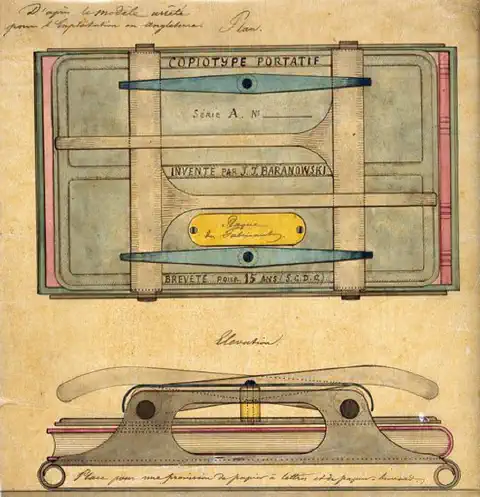 D'après le modèle arrêté
pour l'Exploitation en Angleterre.
Plan.
COPIOTYPE PORTATIF
SÉRIE A. No
INVENTÉ PAR J. J. BARANOWSKI
Plaque
du Fabricant
BREVETÉ POUR 15 ANS (S.G.D.G)
Elevation.
Place pour une provision de papier à lettres et de papier